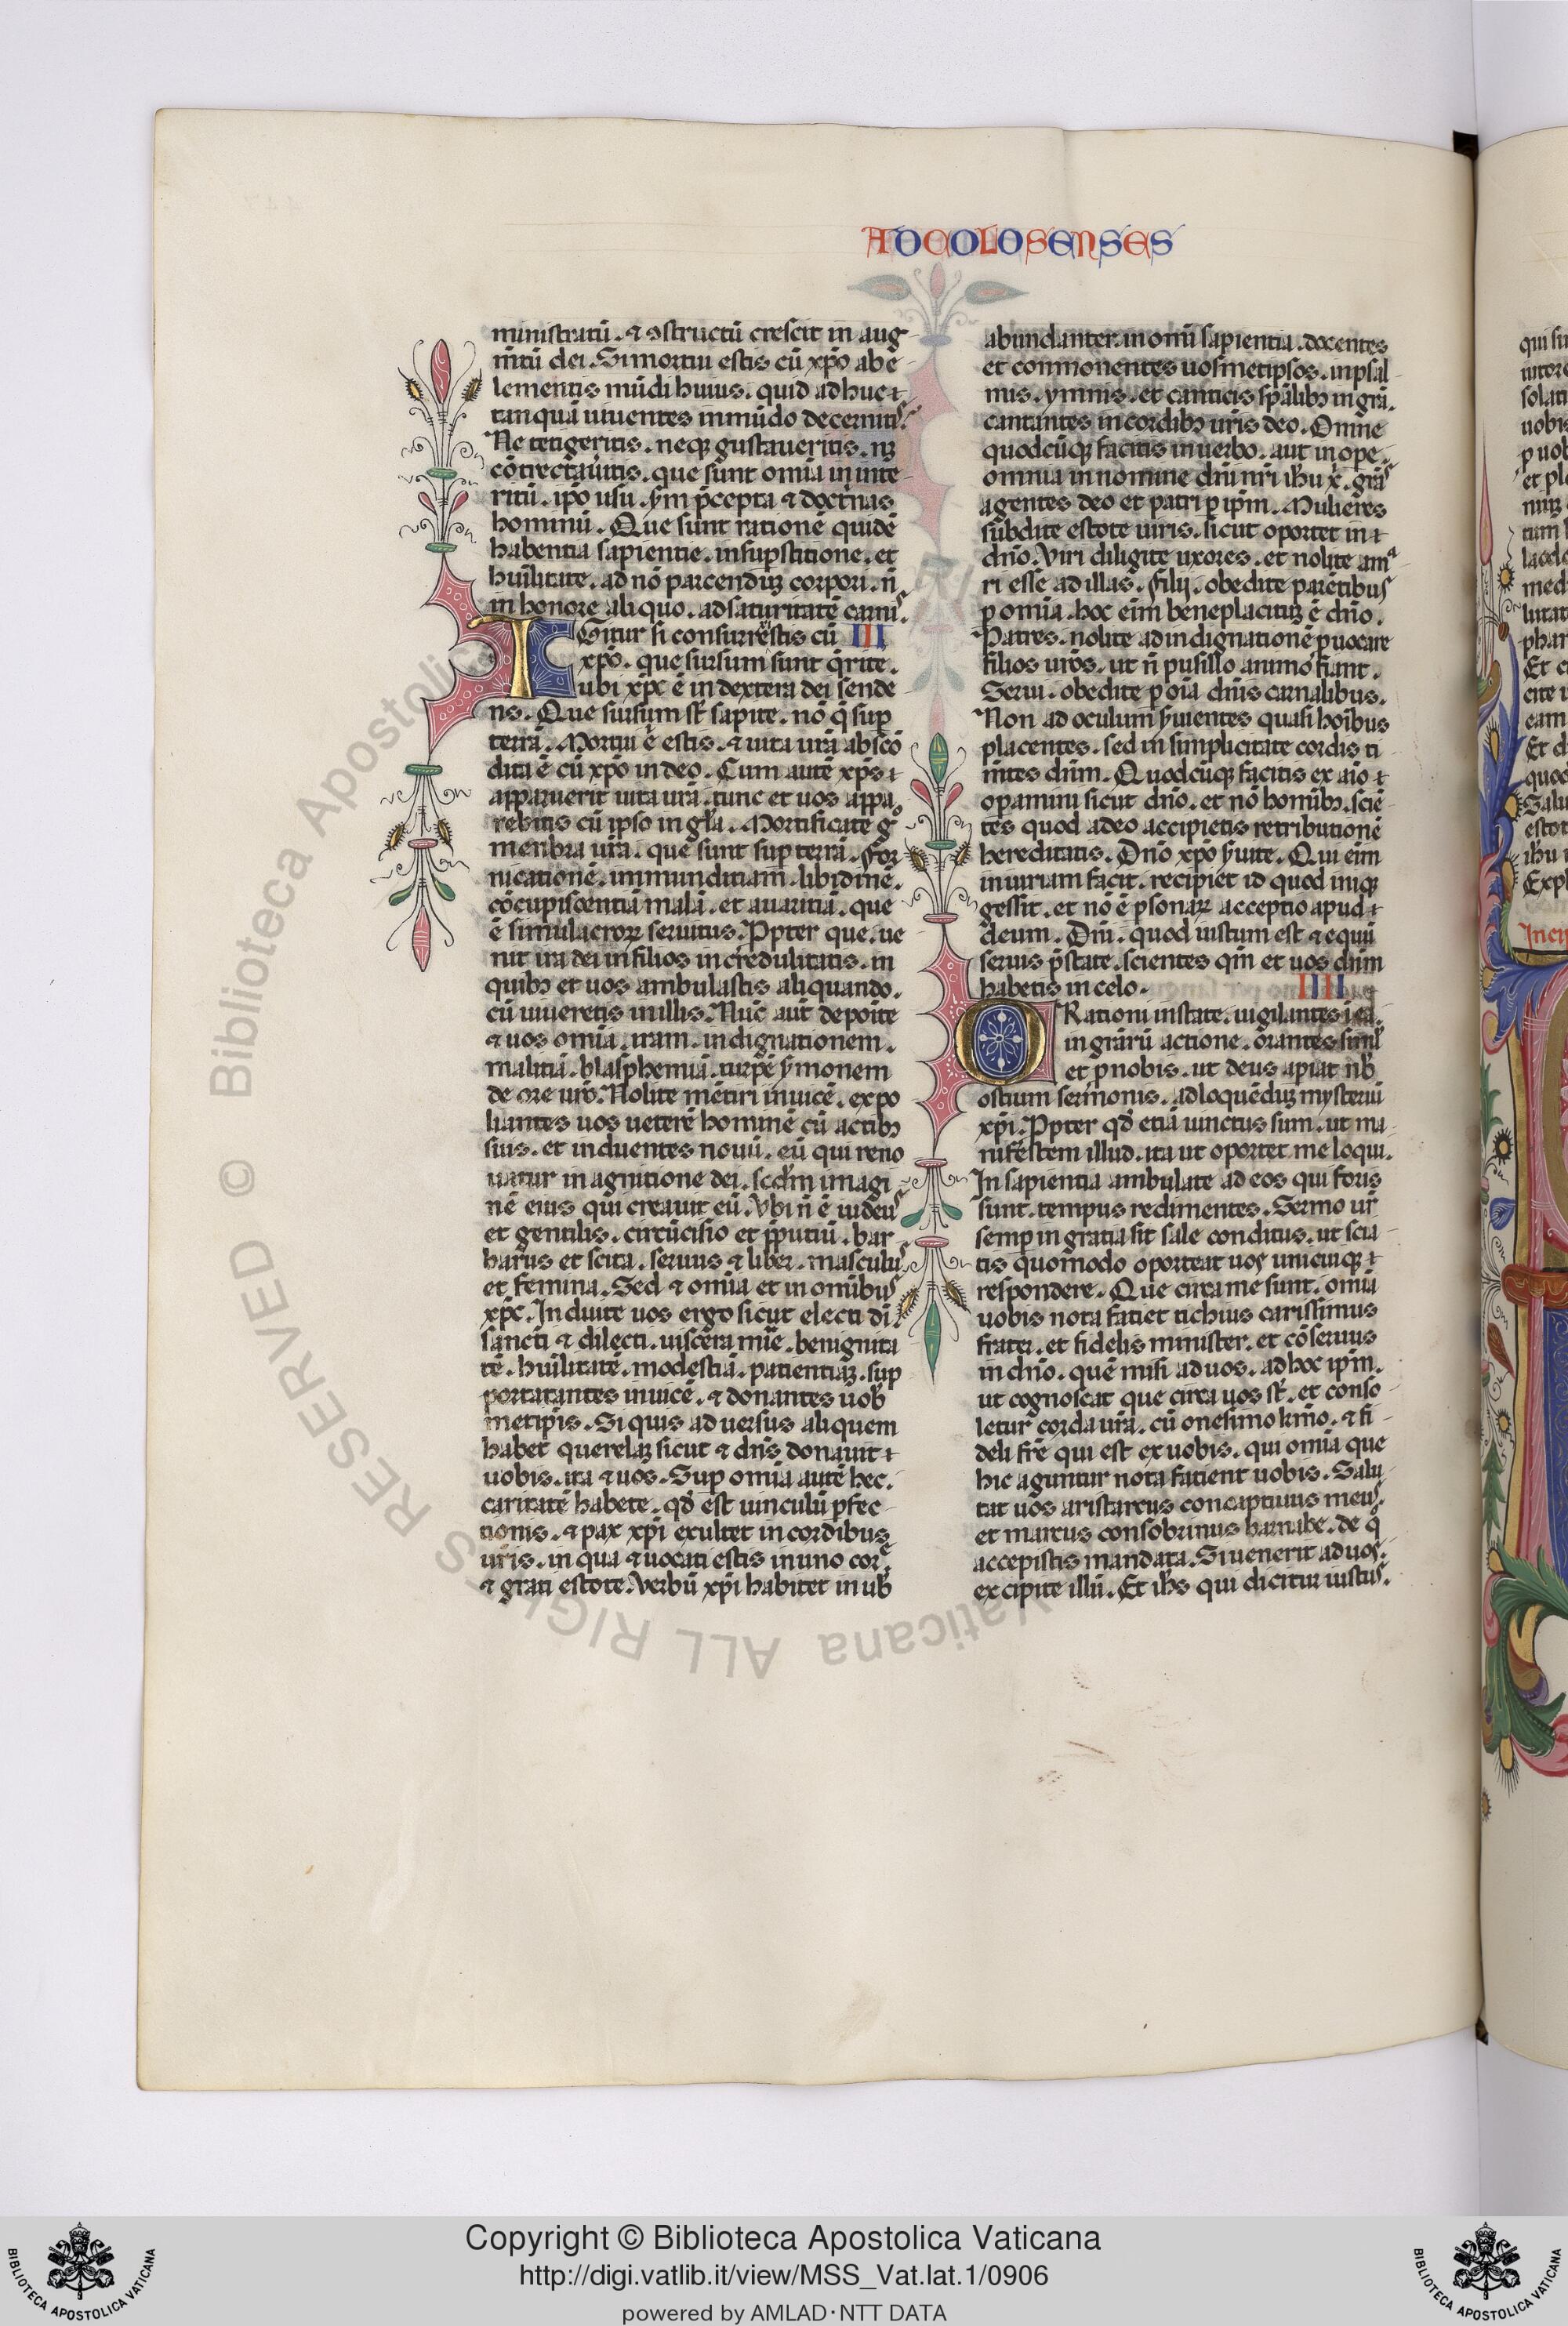 AD COLOSENSES
ministratū. ⁊ ꝯstructū crescit in aug
m̄tū dei. Si mortui estis cū xp̄o ab e
lementis mūdi huius. quid adhuc
tanquā uiuentes in mūdo decernitis.
Ne tetigeritis. neqꝫ gustaueritis. nꝫ
cōtrectaūitis. que sunt om̄ia in inte
ritū. ip̄o usu. ẏm p̄cepta ⁊ doctr̄nas
hominū. Que sunt rationē quidē
habentia sapientie. in sup̄stitione. et
hūilitate. ad nō parcenduꝫ corpori. n̄
in honore aliquo. ad saturitatē carnis.
III
IGitur si consurrexistis cū
xp̄o. que sursum sunt q̄rite.
ubi xp̄c ē in dextera dei sende
ns. Que sursum st̄ sapite. nō q̄ sup
terrā. Mortui ē estis. ⁊ uita ur̄a abscō
dita ē cū xp̄o in deo. Cum autē xp̄s
apparuerit uita ur̄a. tunc et uos appa
rebitis cū ipso in gl̄a. Mortificate gͦ
menbra ur̄a. que sunt sup terrā. for
nicationē. immunditiam. libidinē.
cōcupiscentiā malā. et auaritiā. que
ē simulacroꝝ seruitus. Ppter que. ue
nit ira dei in filios incredulitatis. in
quibꝫ et uos ambulastis aliquando.
cū uiueretis in illis. Nūc aut̄ depoīte
⁊ uos om̄ia. iram. indignationem.
malitiā. blasphemiā. turpē ẏmonem
de ore ur̄o. Nolite mētiri inuicē. expo
liantes uos ueterē hominē cū actibꝫ
suis. et induentes nouū. eū qui reno
uatur in agnitione dei. scd̄m imagi
nē eius qui creauit eū. Vbi n̄ ē iudeus
et gentilis. circūcisio et p̄putiū. bar
barus et scita. seruus ⁊ liber. masculus
et femina. Sed ⁊ om̄ia et in om̄ibus
xp̄c. Induite uos ergo sicut electi di
sancti ⁊ dilecti. uiscera mīe. benignita
tē. hūilitatē. modestiā. patientiaꝫ. sup
portatantes inuicē. ⁊ donantes uob̄
metip̄is. Si quis aduersus aliquem
habet querelaꝫ sicut ⁊ dn̄s donauit
uobis. ita ⁊ uos. Sup om̄ia autē hec.
caritatē habete. qd̄ est uinculū ꝑfec
tionis. ⁊ pax xp̄i exultet in cordibus
ur̄is. in qua ⁊ uocati estis in uno corꝑe
⁊ grati estote. Verbū xp̄i habitet in ub̄
abundanter. in om̄i sapientia. docentes
et conmonentes uosmetipsos. in psal
mis. ymnis. et canticis sp̄alibꝫ in gr̄a.
cantantes in cordibꝫ ur̄is deo. Omne
quodcūqꝫ facitis in uerbo. aut in ope.
omnia in nomine dn̄i nr̄i ih̄u x̄. grās
agentes deo et patri ꝑ ip̄m. Mulieres
subdite estote uiris. sicut oportet in
dn̄o. Viri diligite uxores. et nolite ama
ri esse ad illas. Filij. obedite parētibus
ꝑ om̄ia. hoc eīm beneplacituꝫ ē dn̄o.
Patres. nolite ad indignationē ꝓuocare
filios ur̄os. ut n̄ pusillo animo fiant.
Serui. obedite ꝑ oīa dn̄is carnalibus.
Non ad oculum ẏuientes quasi hoībus
placentes. sed in simplicitate cordis ti
m̄tes dn̄m. Quodcūqꝫ facitis ex aīo
opamini sicut dn̄o. et nō homībꝫ. sciē
tes quod a deo accipietis retributionē
hereditatis. Dn̄o xp̄o ẏuite. Qui eīm
iniuriam facit. recipiet id quod iniqꝫ
gessit. et nō ē ꝑsonaꝝ acceptio apud
deum. Dn̄i. quod iustum est ⁊ equū
seruis p̄state. scientes qm̄ et uos dn̄m
habetis in celo.
IIII
ORationi instate. uigilantes ī ea.
in gr̄arū actione. orantes siml̄
et ꝓ nobis. ut deus apiat nb̄
ostium sermonis. ad loquēduꝫ mysteriū
xp̄i. Ppter qd̄ etiā uinctus sum. ut ma
nifestem illud. ita ut oportet me loqui.
In sapientia ambulate ad eos qui foris
sunt. tempus redimentes. Sermo ur̄
semp in gratia sit sale conditus. ut scia
tis quomodo oporteat uos unicuiqꝫ
respondere. Que circa me sunt. om̄ia
uobis nota fatiet tichius carissimus
frater. et fidelis minister. et cōseruus
in dn̄o. quē misi ad uos. ad hoc ip̄m.
ut cognoscat que circa uos st̄. et conso
letur corda ur̄a. cū onesimo k̄mo. ⁊ fi
deli fr̄e qui est ex uobis. qui om̄ia que
hic aguntur nota fatient uobis. Salu
tat uos aristarcus concaptiuus meus.
et marcus consobrinus barnabe. de q̄
accepistis mandata. Si uenerit ad uos.
excipite illū. Et ih̄s qui dicitur iustus.
© Biblioteca Apostolica Vaticana ALL RIGHTS RESERVED
Copyright © Biblioteca Apostolica Vaticana
http://digi.vatlib.it/view/MSS_Vat.lat.1/0906
powered by AMLAD·NTT DATA
BIBLIOTECA APOSTOLICA VATICANA
BIBLIOTECA APOSTOLICA VATICANA